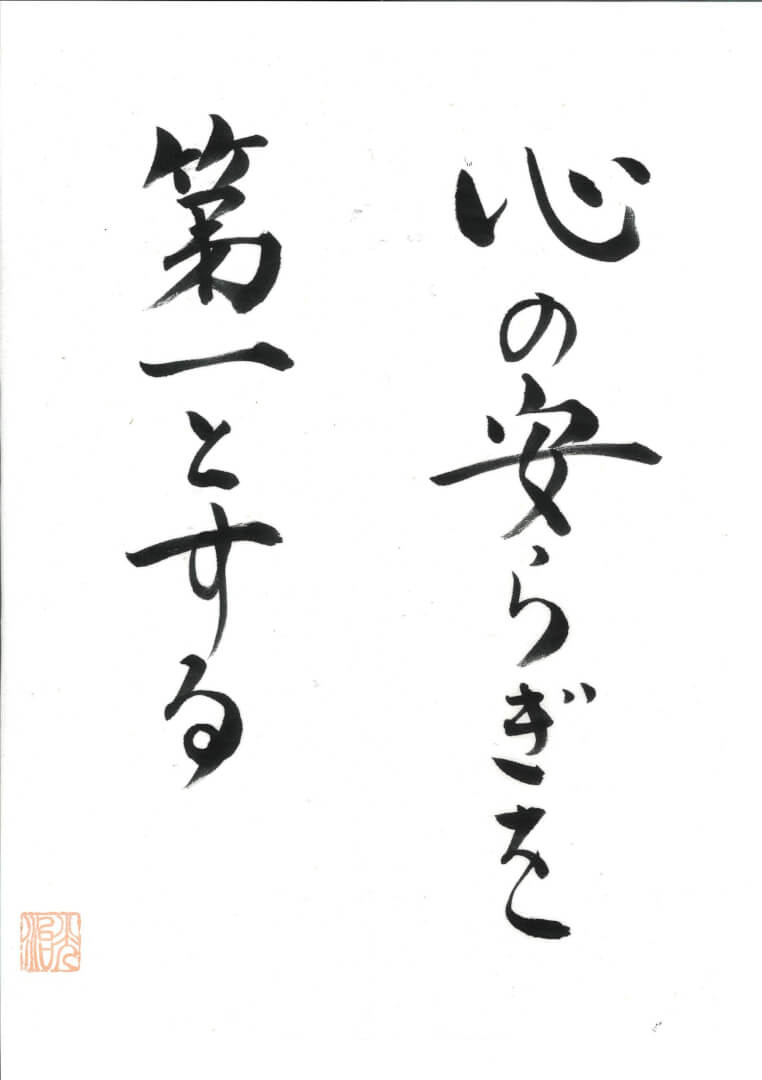 心の安らぎを
第一とする